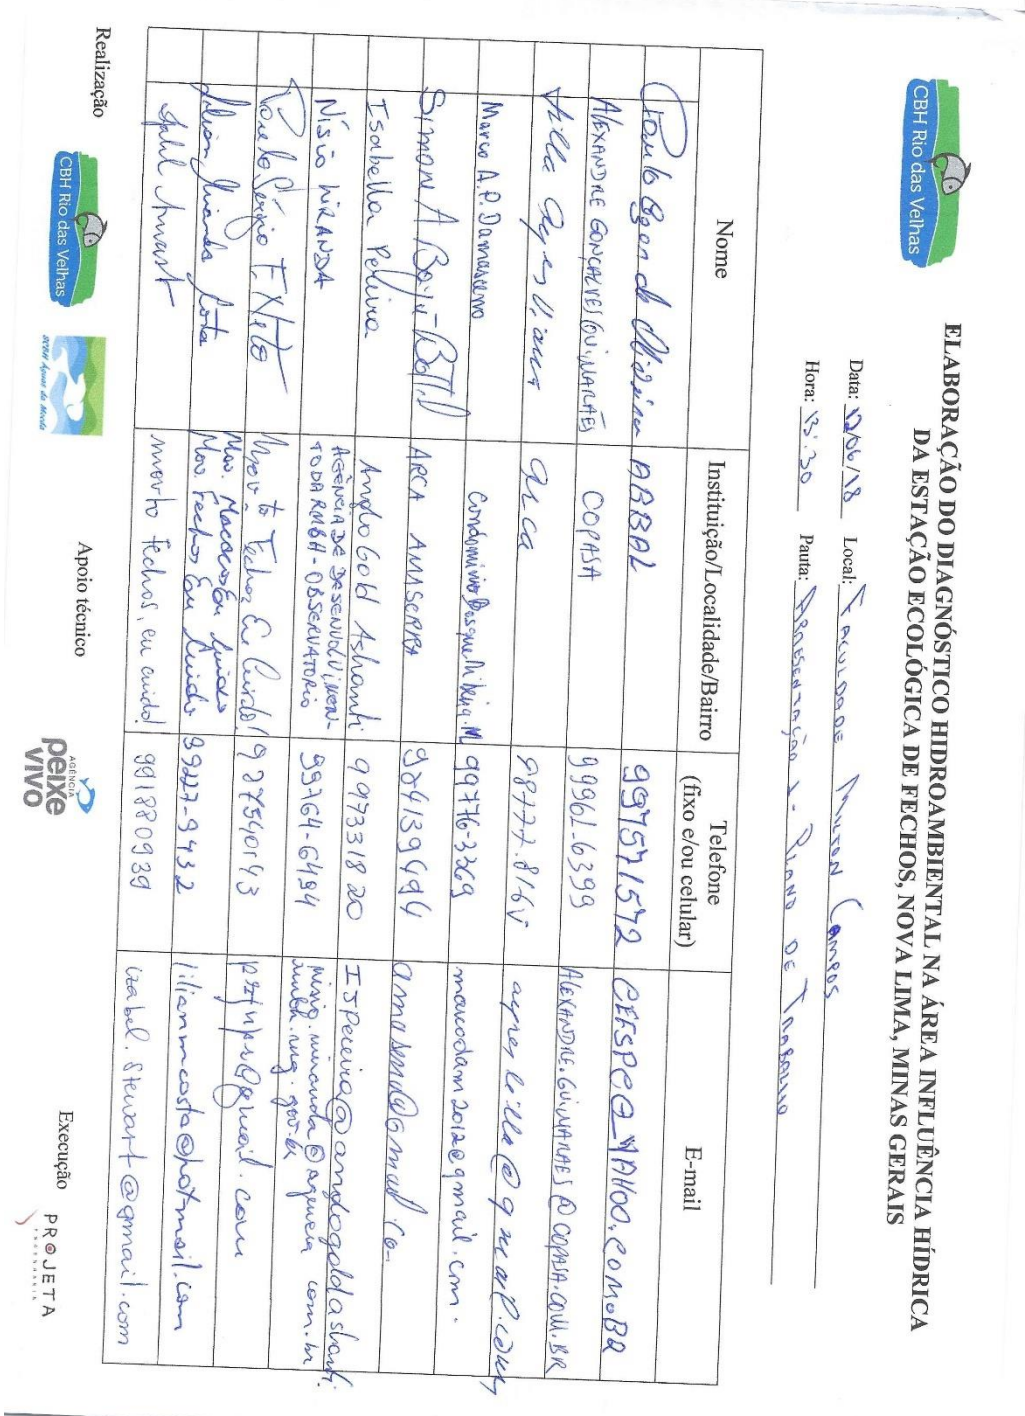 CBH Rio das Velhas
ELABORAÇÃO DO DIAGNÓSTICO HIDROAMBIENTAL NA ÁREA INFLUÊNCIA HÍDRICA
DA ESTAÇÃO ECOLÓGICA DE FECHOS, NOVA LIMA, MINAS GERAIS
Data: 12/06/18 Local: FACULDADE MILTON CAMPOS
Hora: 13:30 Pauta: APRESENTAÇÃO PLANO DE TRABALHO
Nome Instituição/Localidade/Bairro Telefone (fixo e/ou celular) E-mail
Paulo de Oliveira ABBAL 997571572 CEFSPEO_YAHOO.COM.BR
ALEXANDRE GONÇALVES GUIMARÃES COPASA 99961-6399 ALEXANDRE.GUIMARAES@COPASA.COM.BR
Ayres Viana arca
Marco A.P. Damasceno Condomínio 99776-3369 marcodam2012@gmail.com.
Simone A ARCA AMASERRA 984139494
Isabella Pereira AngloGold Ashanti 997331820 ISPereira@anglogoldashanti.
NÍSIO MIRANDA AGÊNCIA DE DESENVOLVIMEN-
TO DA RMBH - OBSERVATORIO 99764-6494 nisio.miranda@agencia
rmbh.mg.gov.br com.br
Paulo Sérgio F. Neto Movto Fechos Eu Cuido!
Mov. Fechos Eu Cuido 99227-9432 lilianmcosta@hotmail.com
movto Fechos, eu cuido! 991880939 izabel.stewart@gmail.com
Realização
CBH Rio das Velhas
SCBH Águas da Moeda
Apoio técnico
AGÊNCIA
peixe
vivo
Execução
PROJETA
ENGENHARIA